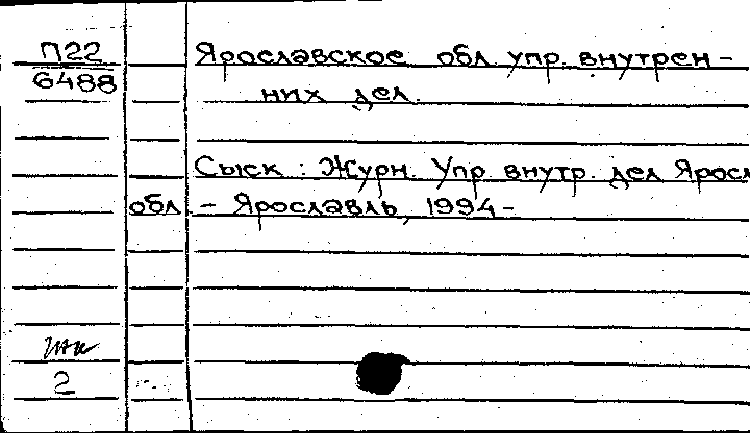 П22 Ярославское обл. упр. внутрен-
6488 них дел.
Сыск : Журн. Упр. внутр. дел Яросл
обл. - Ярославль, 1994-
2